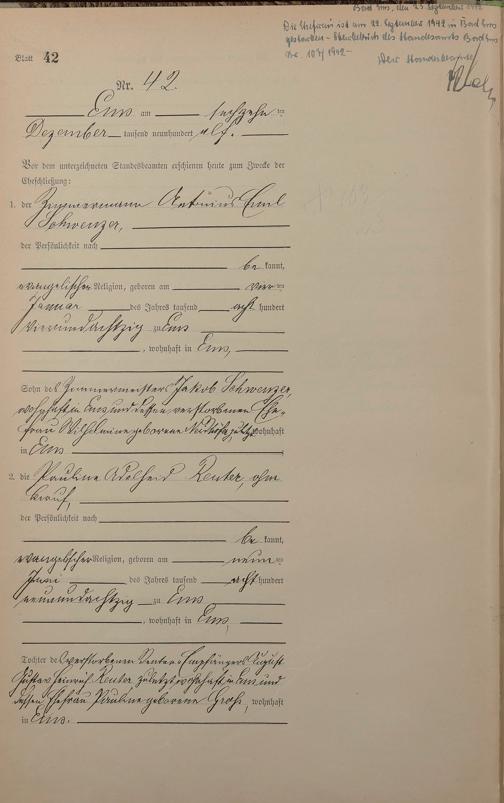 Bad Ems, den 23. September 1942
Die Ehefrau ist am 22. September 1942 in Bad Ems
gestorben - Sterbebuch des Standesamts Bad Ems
Nr. 107/1942 -
Der Standesbeamte
Blatt 42
Nr. 42.
Ems am sechzehn ten
Dezember tausend neunhundert elf.
Vor dem unterzeichneten Standesbeamten erschienen heute zum Zwecke der
Eheschließung:
1. der Zimmermann Emil
Schwenzer,
der Persönlichkeit nach
be kannt,
evangelischer Religion, geboren am vier ten
Januar des Jahres tausend acht hundert
vierundachtzig zu Ems
, wohnhaft in Ems,
Sohn des Zimmermeisters Jakob Schwenzer,
wohnhaft in Ems und dessen verstorbenen Ehe-
frau Wilhelmine geborene zuletzt wohnhaft
in Ems
2. die Pauline Adelheid Reuter, ohne
Beruf,
der Persönlichkeit nach
be kannt,
evangelischer Religion, geboren am neun ten
Juni des Jahres tausend acht hundert
neunundachtzig zu Ems
, wohnhaft in Ems,
Tochter des verstorbenen Renten-Empfängers August
Gustav Heinrich Reuter zuletzt wohnhaft in Ems und
dessen Ehefrau Pauline geborene Groß, wohnhaft
in Ems.